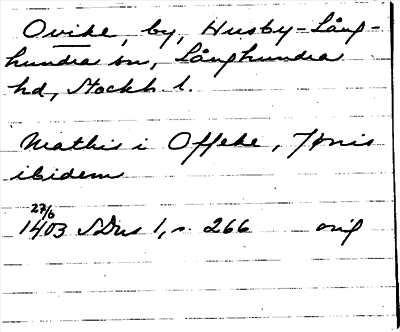 Ovike, by, Husby-Lång-
hundra sn, Långhundra
hd, Stockh. l.
Mathis i Offeke, Jönis
ibidem
27/6
1403 SDns 1, s. 266 orig